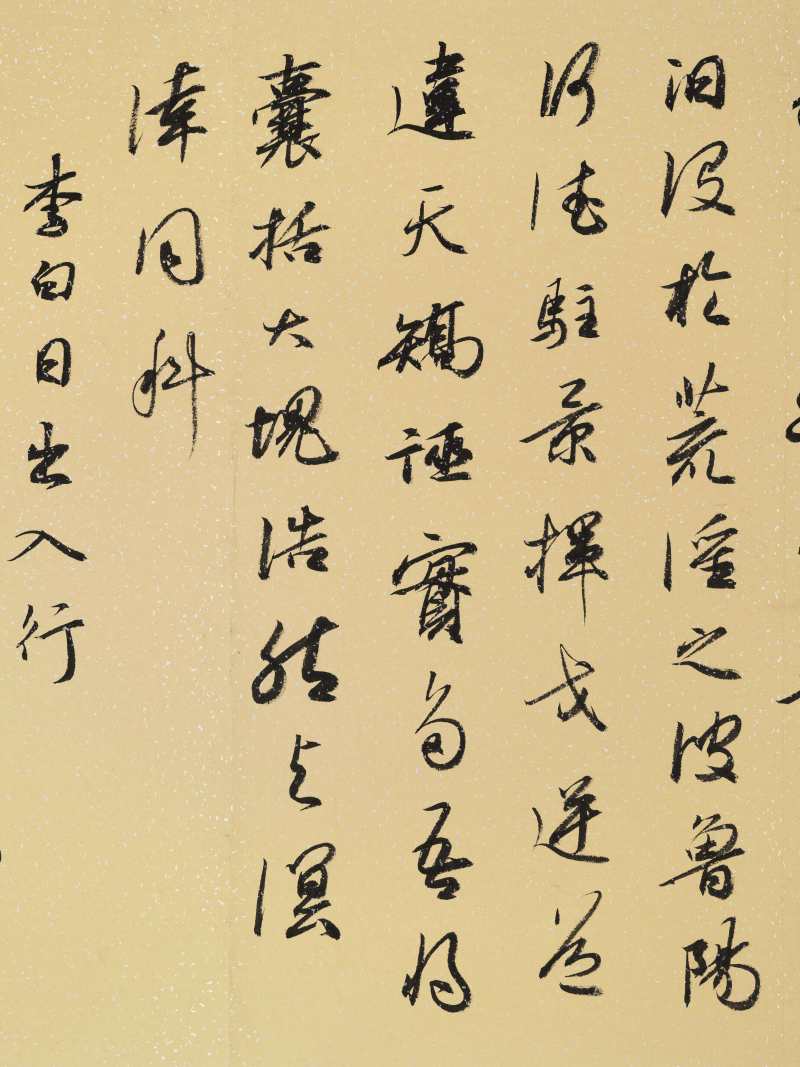 汩没於荒淫之波魯陽
何德駐景揮戈逆道
違天矯誣實多吾將
囊括大塊浩然與溟
涬同科
李白日出入行